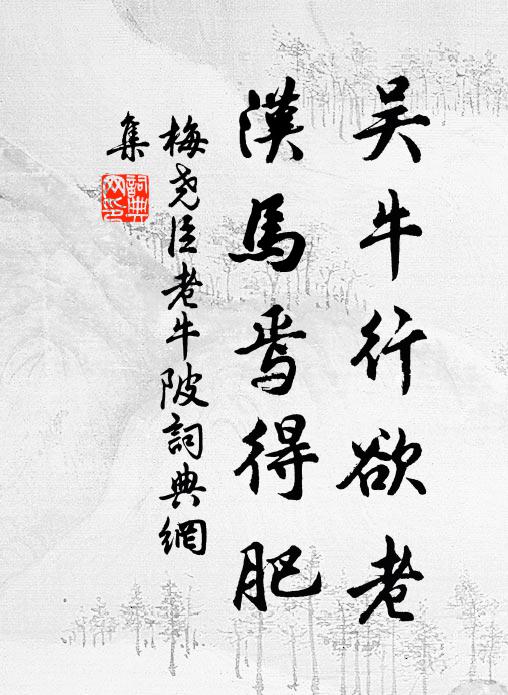 吴牛行欲老
漢馬焉得肥
梅尧臣老牛陂詞典網
集
詞典网印